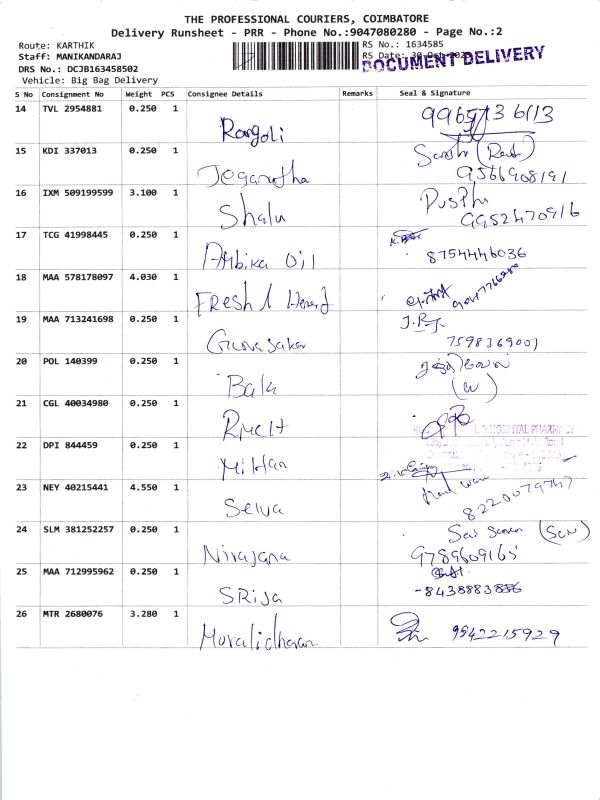 THE PROFESSIONAL COURIERS, COIMBATORE
Delivery Runsheet - PRR - Phone No.:9047080280 - Page No.:2
Route: KARTHIK
RS No.: 1634585
Staff: MANIKANDARAJ
RS Date: 30-Oct-2025
DOCUMENT DELIVERY
DRS No.: DCJB163458502
Vehicle: Big Bag Delivery
S No Consignment No Weight PCS Consignee Details Remarks Seal & Signature
14 TVL 2954881 0.250 1
Rangoli
15 KDI 337013 0.250 1
Jeganatha
9566908191
16 IXM 509199599 3.100 1
Shalu
Pushpa
9952470916
17 TCG 41998445 0.250 1
Ambika Oil
8754446036
18 MAA 578178097 4.030 1
FRESH
19 MAA 713241698 0.250 1
Gunasakar
7598369007
20 POL 140399 0.250 1
Bala
21 CGL 40034980 0.250 1
HOSPITAL PHARMACY
22 DPI 844459 0.250 1
23 NEY 40215441 4.550 1
Selva
8220079747
24 SLM 381252257 0.250 1
Nirajana
9789609165
25 MAA 712995962 0.250 1
SRija
26 MTR 2680076 3.280 1
Muralidharan
9942215929